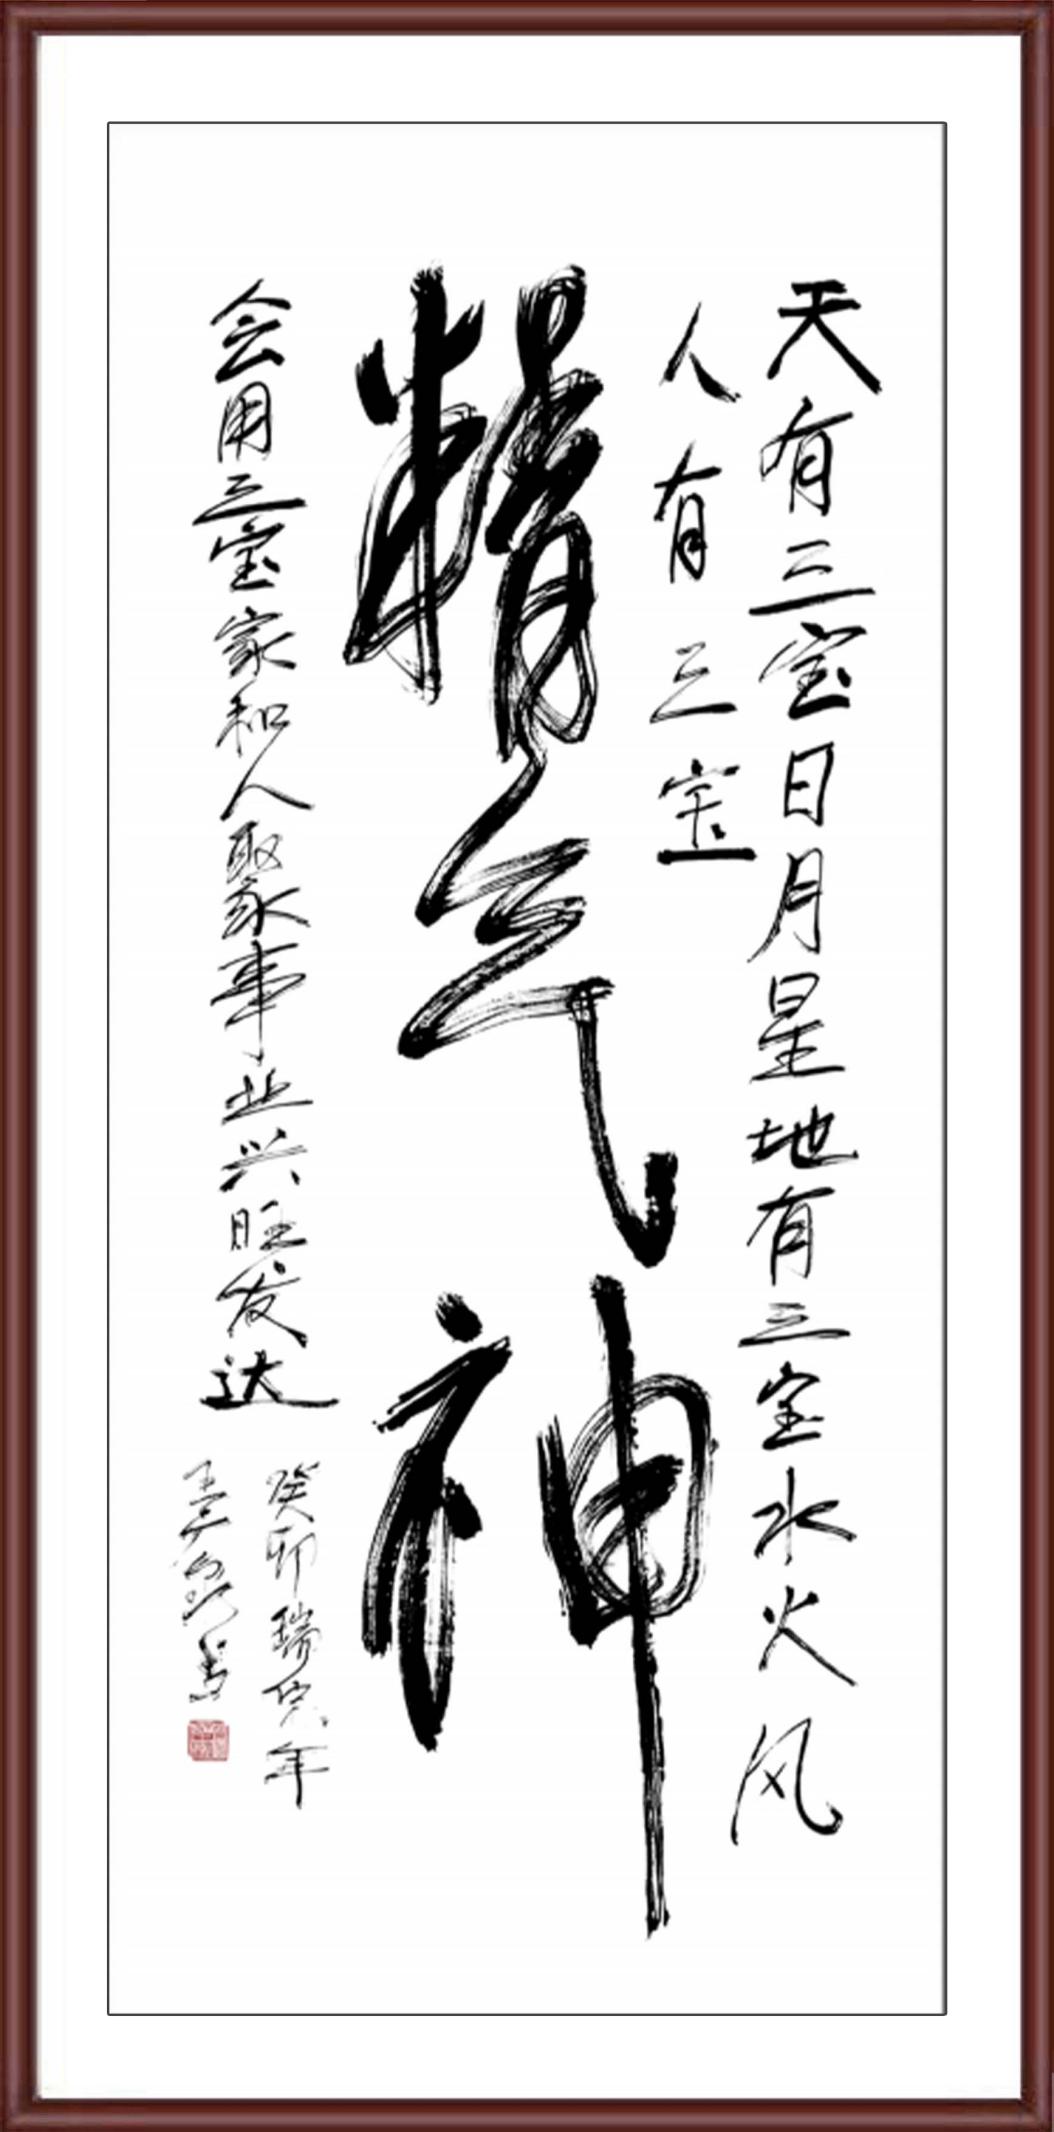 天有三宝日月星地有三宝水火风
人有三宝
精气神
会用三宝家和人聚事业兴旺发达
癸卯瑞兔年